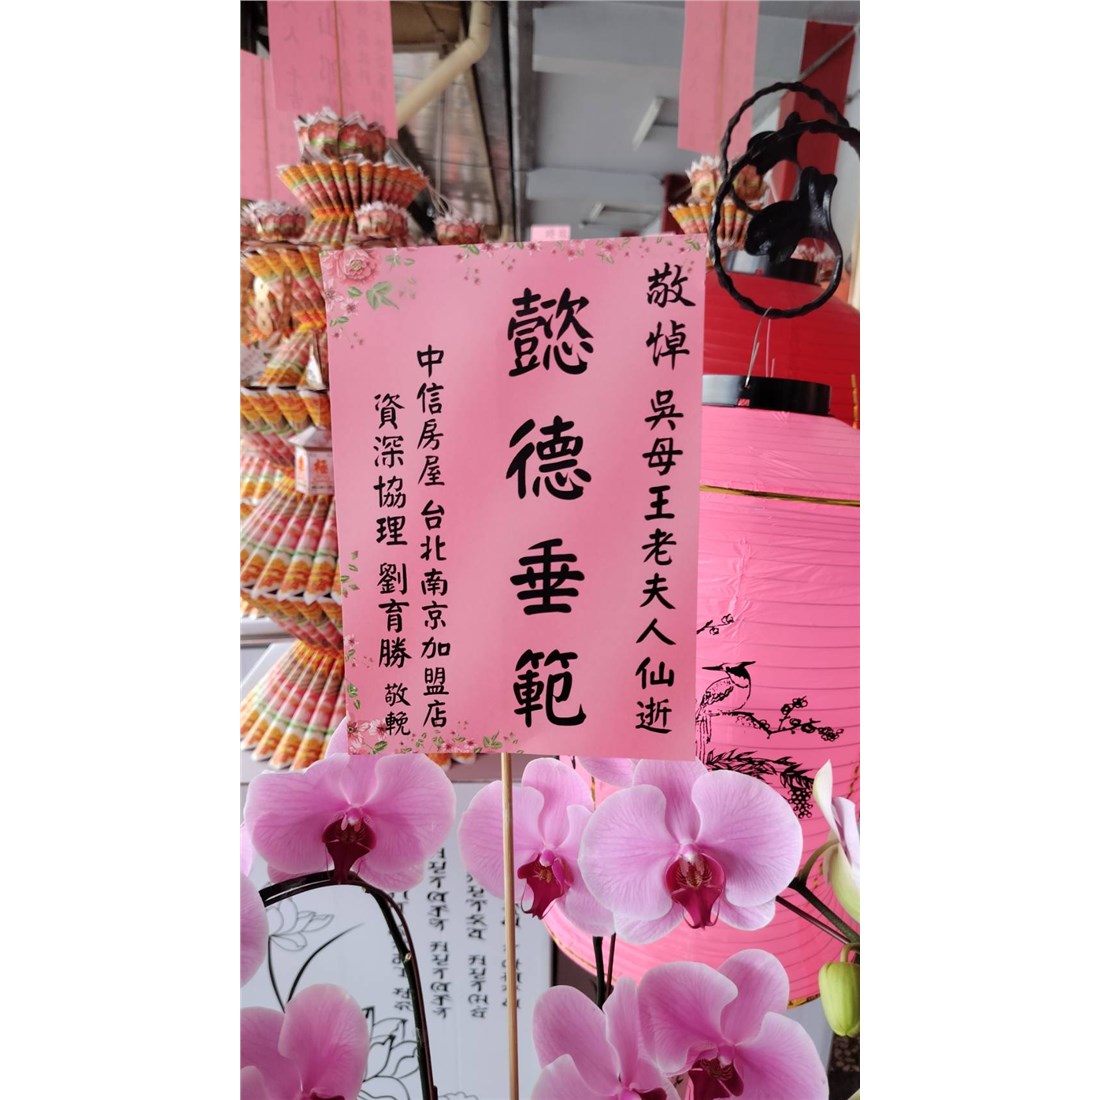 敬悼 吳母王老夫人仙逝
懿德垂範
中信房屋 台北南京加盟店
資深協理 劉育勝 敬輓